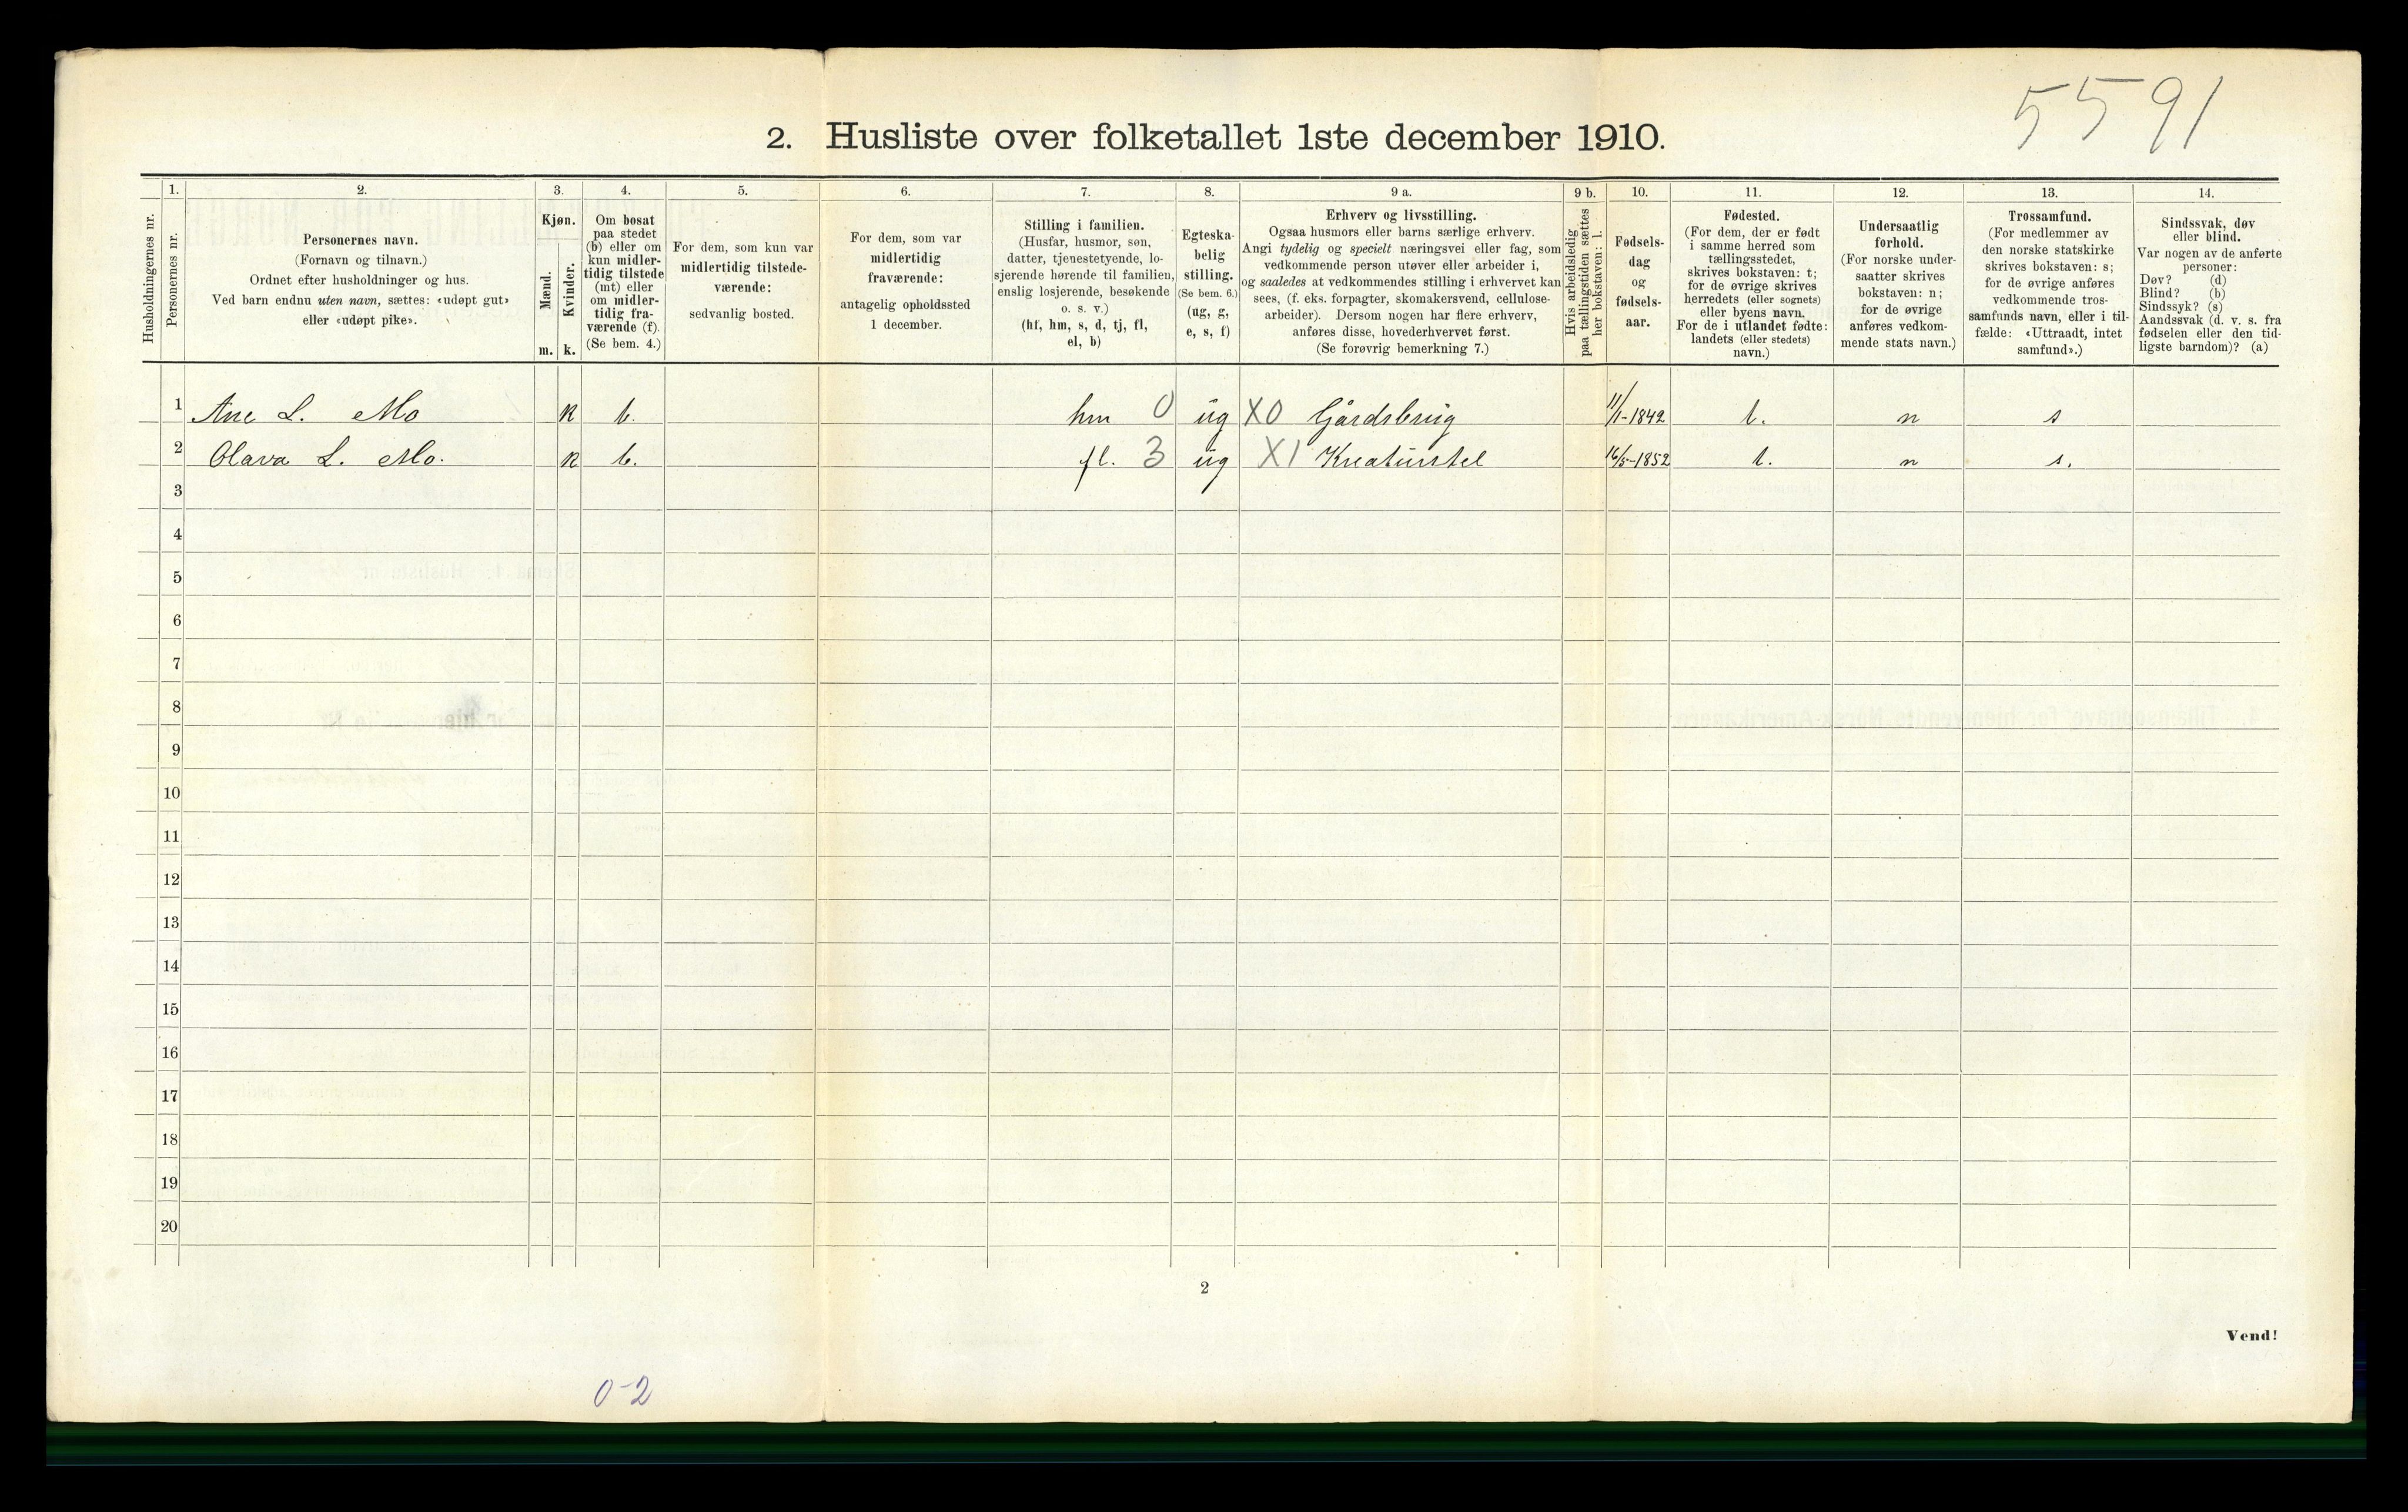 5591
2. Husliste over folketallet 1ste december 1910.
Husholdningernes nr.
1.
Personernes nr.
2.
Personernes navn.
(Fornavn og tilnavn.)
Ordnet efter husholdninger og hus.
Ved barn endnu uten navn, sættes: «udøpt gut»
eller «udøpt pike».
3.
Kjøn.
Mænd.
m.
Kvinder.
k.
4.
Om bosat
paa stedet
(b) eller om
kun midler-
tidig tilstede
(mt) eller
om midler-
tidig fra-
værende (f).
(Se bem. 4.)
5.
For dem, som kun var
midlertidig tilstede-
værende:
sedvanlig bosted.
6.
For dem, som var
midlertidig
fraværende:
antagelig opholdssted
1 december.
7.
Stilling i familien.
(Husfar, husmor, søn,
datter, tjenestetyende, lo-
sjerende hørende til familien,
enslig losjerende, besøkende
o. s. v.)
(hf, hm, s, d, tj, fl,
el, b)
8.
Egteska-
belig
stilling.
(Se bem. 6.)
(ug, g,
e, s, f)
9 a.
Erhverv og livsstilling.
Ogsaa husmors eller barns særlige erhverv.
Angi tydelig og specielt næringsvei eller fag, som
vedkommende person utøver eller arbeider i,
og saaledes at vedkommendes stilling i erhvervet kan
sees, (f. eks. forpagter, skomakersvend, cellulose-
arbeider). Dersom nogen har flere erhverv,
anføres disse, hovederhvervet først.
(Se forøvrig bemerkning 7.)
9 b.
Hvis arbeidsledig
paa tællingstiden sættes
her bokstaven: l.
10.
Fødsels-
dag
og
fødsels-
aar.
11.
Fødested.
(For dem, der er født
i samme herred som
tællingsstedet,
skrives bokstaven: t;
for de øvrige skrives
herredets (eller sognets)
eller byens navn.
For de i utlandet fødte:
landets (eller stedets)
navn.)
12.
Undersaatlig
forhold.
(For norske under-
saatter skrives
bokstaven: n;
for de øvrige
anføres vedkom-
mende stats navn.)
13.
Trossamfund.
(For medlemmer av
den norske statskirke
skrives bokstaven: s;
for de øvrige anføres
vedkommende tros-
samfunds navn, eller i til-
fælde: «Uttraadt, intet
samfund».)
14.
Sindssvak, døv
eller blind.
Var nogen av de anførte
personer:
Døv? (d)
Blind? (b)
Sindssyk? (s)
Aandssvak (d. v. s. fra
fødselen eller den tid-
ligste barndom)? (a)
1 Ane L. Mo k b. hm 0 ug X0 Gårdsbrug 11/1-1842 t. n s
2 Olava L. Mo. k b. fl. 3 ug X1 Kreaturstel 16/5-1852 t. n s.
3
4
5
6
7
8
9
10
11
12
13
14
15
16
17
18
19
20
2
Vend!
0-2